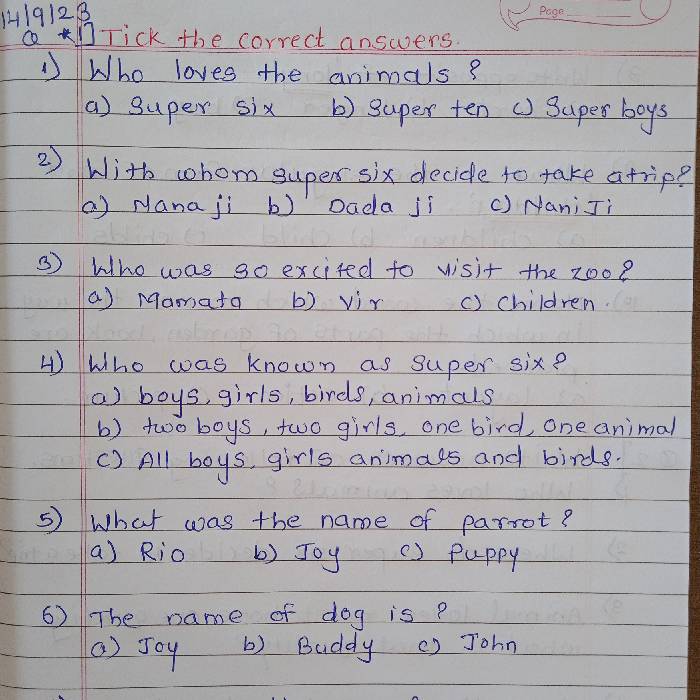 Page
14/9/23
Q *1] Tick the correct answers.
1) Who loves the animals ?
a) Super six b) Super ten c) Super boys
2) With whom super six decide to take a trip?
a) Nana ji b) Dada ji c) Nani Ji
3) Who was so excited to visit the zoo?
a) Mamata b) Vir c) Children.
4) Who was known as super six?
a) boys, girls, birds, animals
b) two boys, two girls, one bird, one animal
c) All boys, girls animals and birds.
5) What was the name of parrot?
a) Rio b) Joy c) Puppy
6) The name of dog is ?
a) Joy b) Buddy c) John